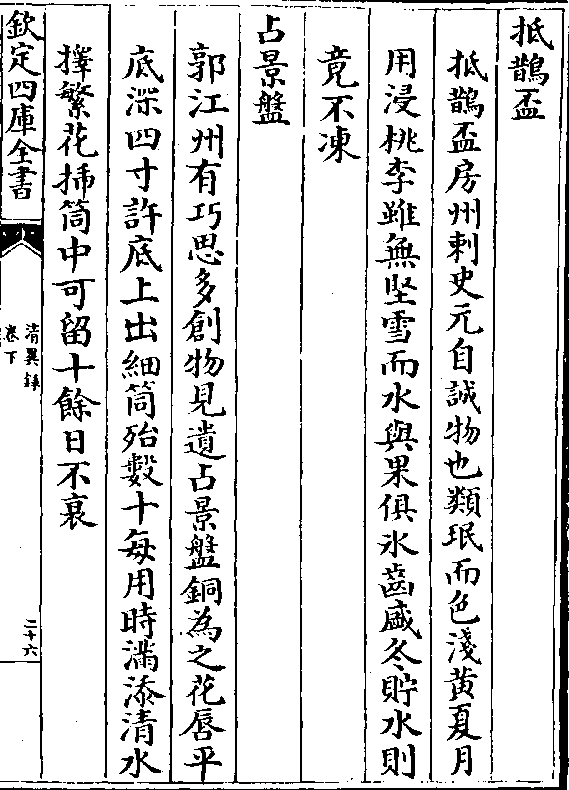 抵鵲盃
抵鵲盃房州刺史元自誠物也類珉而色淺黄夏月
用浸桃李雖無堅雪而水與果俱氷齒盛冬貯水則
竟不凍
占景盤
郭江州有巧思多創物見遺占景盤銅為之花唇平
底深四寸許底上出細筒殆數十每用時滿添清水
擇繁花揷筒中可留十餘日不衰
欽定四庫全書
清異錄
卷下
二十六